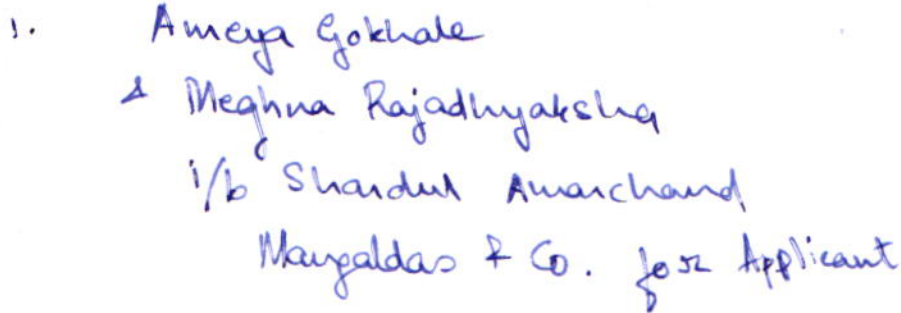 1. Ameya Gokhale
& Meghna Rajadhyaksha
i/b Shardul Amarchand
Mangaldas & Co. for Applicant